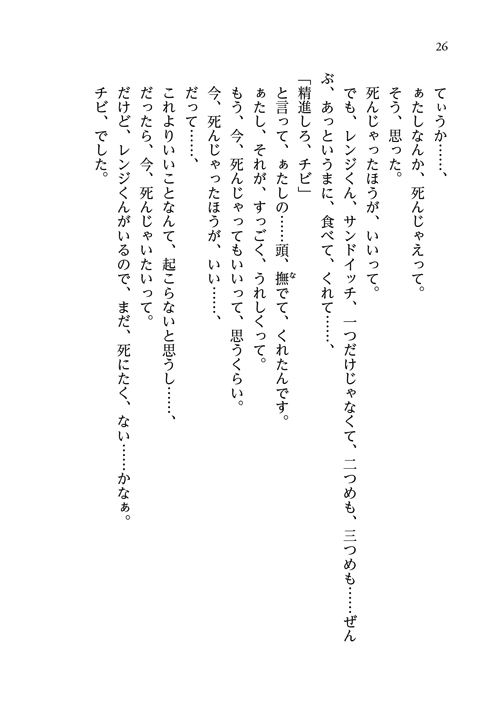 26
てぃうか……、
ぁたしなんか、死んじゃえって。
そう、思った。
死んじゃったほうが、いいって。
でも、レンジくん、サンドイッチ、一つだけじゃなくて、二つめも、三つめも……ぜん
ぶ、あっというまに、食べて、くれて……、
「精進しろ、チビ」
と言って、ぁたしの……頭、撫でて、くれたんです。
な
ぁたし、それが、すっごく、うれしくって。
もう、今、死んじゃってもいいって、思うくらい。
今、死んじゃったほうが、いい……、
だって……、
これよりいいことなんて、起こらないと思うし……、
だったら、今、死んじゃいたいって。
だけど、レンジくんがいるので、まだ、死にたく、ない……かなぁ。
チビ、でした。